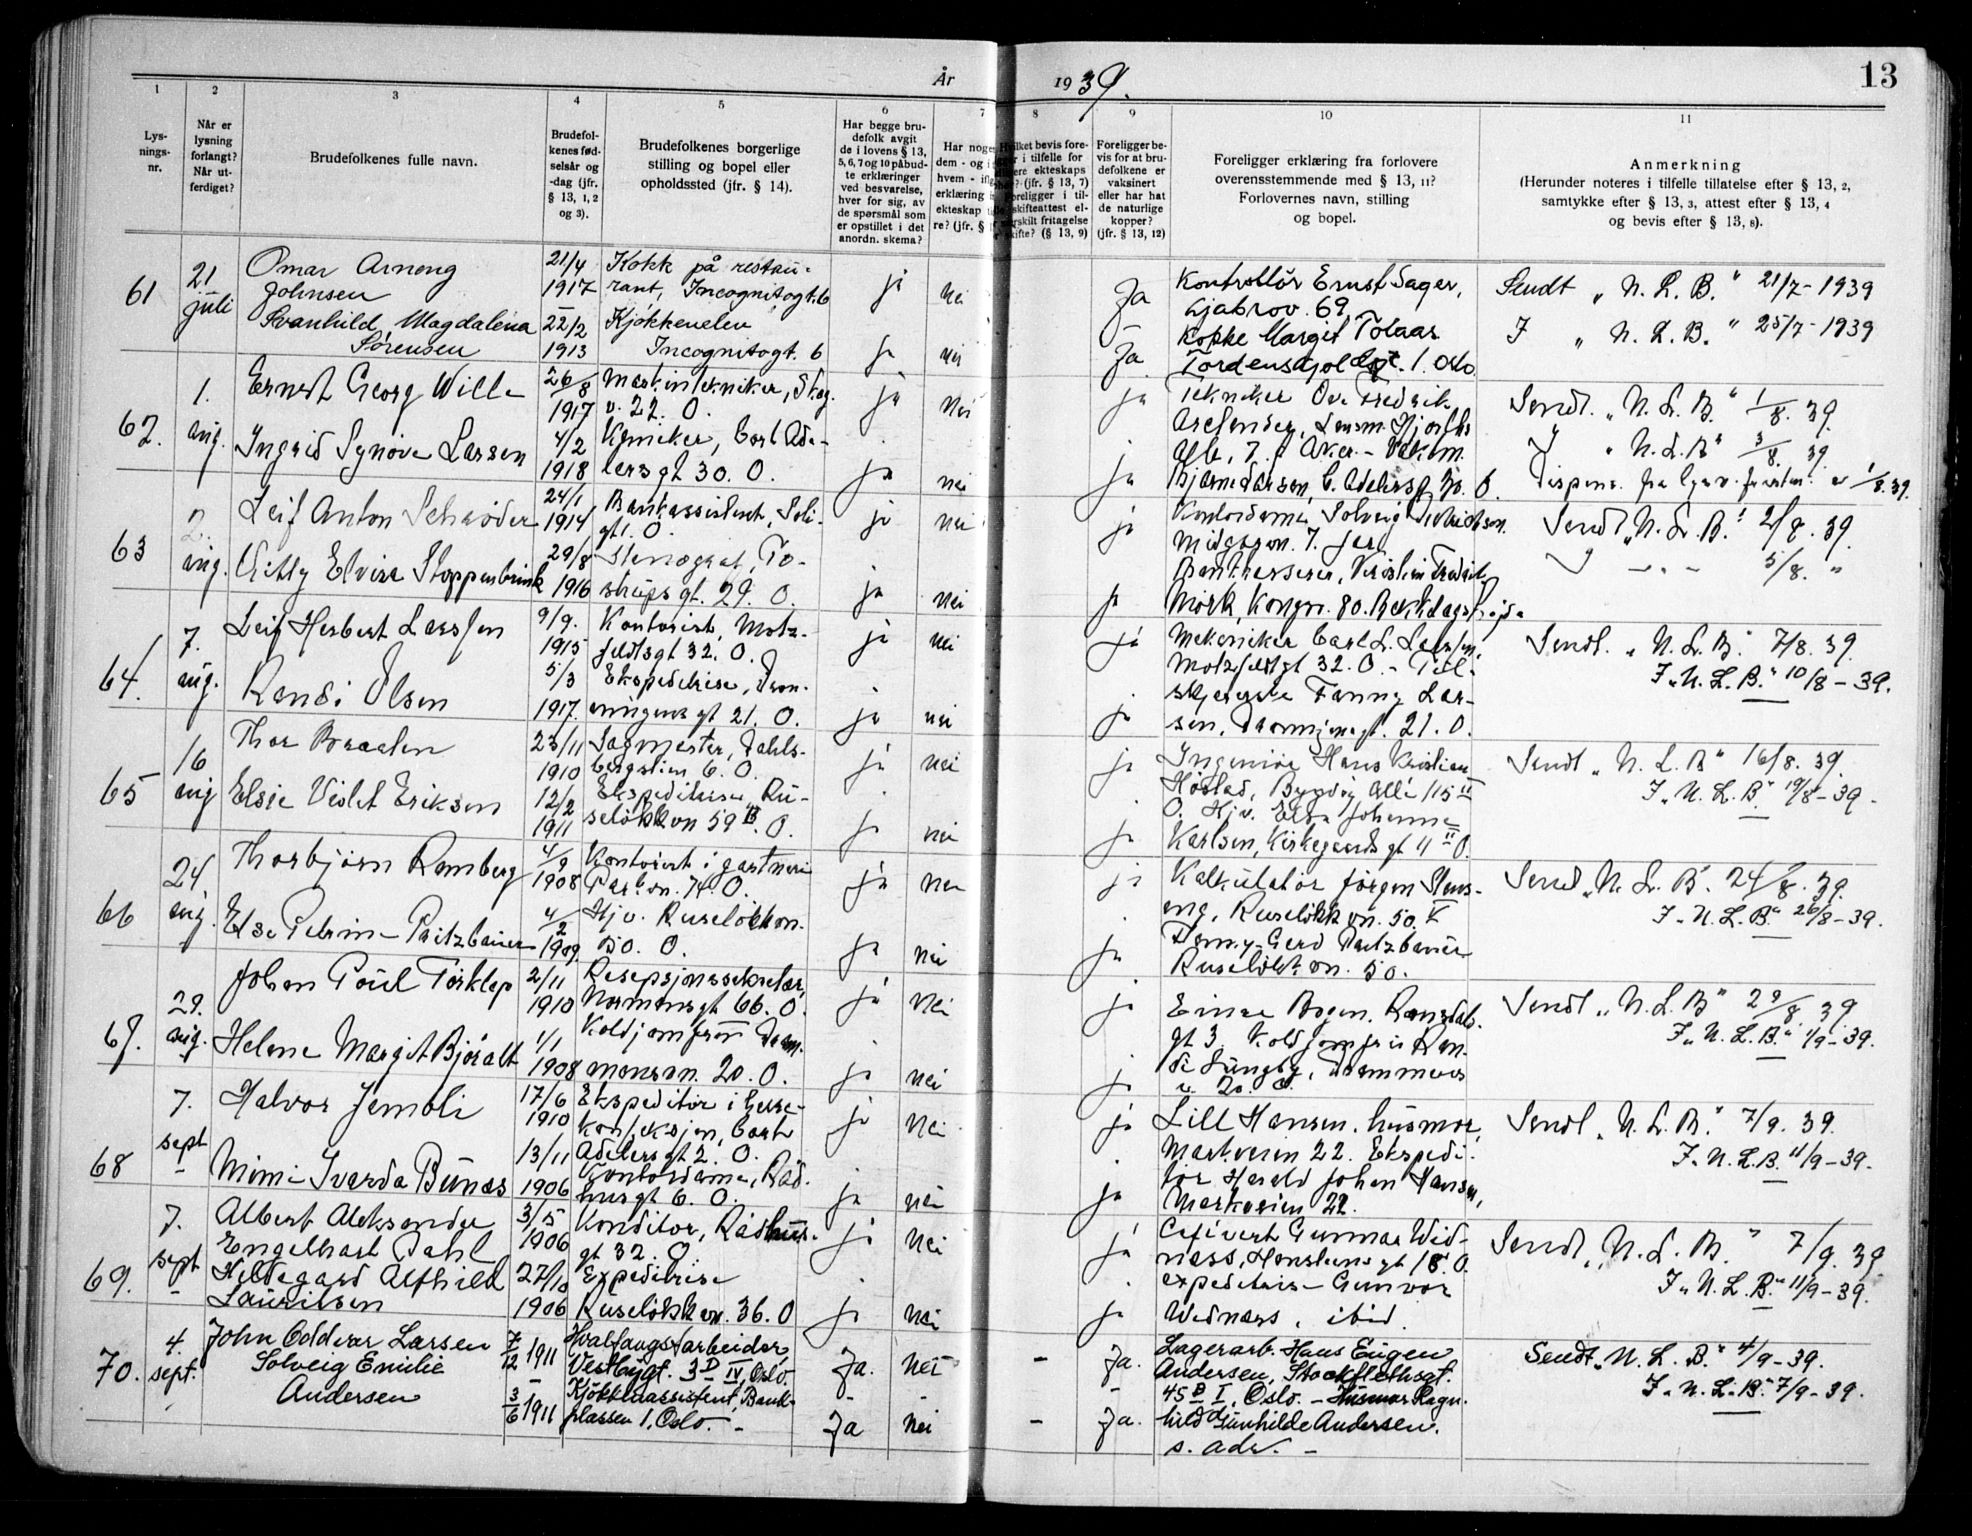 År 1939.
13
1
2
3
4
5
6
7
8
9
10
11
Lys-
nings-
nr.
Når er
lysning
forlangt?
Når ut-
ferdiget?
Brudefolkenes fulle navn.
Brudefol-
kenes fød-
selsår og
-dag (jfr.
§ 13, 1, 2
og 3).
Brudefolkenes borgerlige
stilling og bopel eller
opholdssted (jfr. § 14).
Har begge bru-
defolk avgit
de i lovens § 13,
5, 6, 7 og 10 påbud-
te erklæringer
ved besvarelse,
hver for sig, av
de spørsmål som
er opstillet i det
anordn. skema?
Har noge
dem - og i
hvem - ifl
erklæring
ekteskap
re? (jfr. §
ket bevis fore-
i tilfelle for
ere ekteskaps
? (jfr. § 13, 7)
oreligger i til-
skifteattest el-
rskilt fritagelse
skifte? (§ 13, 9)
Foreligger be-
vis for at bru-
defolkene er
vaksinert
eller har hat
de naturlige
kopper?
(jfr. § 13, 12)
Foreligger erklæring fra forlovere
overensstemmende med § 13, 11?
Forlovernes navn, stilling
og bopel.
Anmerkning
(Herunder noteres i tilfelle tillatelse efter § 13, 2,
samtykke efter § 13, 3, attest efter § 13, 4
og bevis efter § 13, 8).
61
21
juli
Omar Arneng
Johnsen
Svanhild Magdalena
Sørensen
21/4
1917
22/2
1913
Kokk på restau-
rant, Incognitogt. 6
Kjøkkenelev
Incognitogt. 6
ja nei
ja nei
Ja
Ja
Kontrollør Ernst Sager,
Ljabrov. 69.
Kokke Margit Tolaas
Tordenskjoldsgt. 1. Oslo.
Sendt „N. L. B." 21/7 - 1939
I „N. L. B." 25/7 - 1939
62.
1.
aug.
Ernst Georg Wille
Ingrid Synøve Larsen
26/8
1917
4/2
1918
Maskintekniker, Skog.
v. 22. O.
Kemiker, Carl Ade-
lersgt 30. O.
ja nei
ja nei
ja
ja
Tekniker Ove Fredrik
Sendt. „N. L. B." 1/8. 39.
I „N. L. B" 3/8. 39.
63
2.
aug.
Leif Anton Schrøder
Stoppenbrink
24/1
1914
29/8
1916
Bankassistent,
gt. O.
Stenograf, To-
strups gt. 29. O.
ja nei
ja nei
ja
ja
Kontordame Solveig
Mørk, Kongsv. 80. Bekkelagshøgda
Sendt „N. L. B." 2/8. 39.
5/8. "
64.
7.
aug.
Leif Herbert Larssen
Randi Olsen
9/9.
1915
5/3
1917.
Kontorist, Motz-
feldtsgt 32. O.
Ekspeditrise, Dron-
ningens gt 21. O.
ja nei
ja nei
ja
ja
Mekaniker Carl L. Larssen,
Motzfeldtgt 32. O. -
Fanny Lar-
sen, Dronningensgt. 21. O.
Sendt. „N. L. B." 7/8. 39.
I „N. L. B." 10/8 - 39.
65
16
aug
Thor Braaten
Elsie Violet Eriksen
23/11
1910
12/2
1911
Sagmester, Dahls-
bergstien 6. O.
Ekspeditrise, Ru-
seløkkvn 59 B. O.
ja nei
ja nei
ja
ja
Ingeniør Hans Kristian
Høstad, Bygdøy Allé 115 II
O. Hjv. Johanne
Karlsen, Kirkegaardsgt 11 II O.
Sendt „N. L. B" 16/8. 39.
I „N. L. B." 19/8 - 39.
66
24
aug.
Thorbjørn Romberg
Else Petrine Pritzbauer
4/9
1908
4/2
1909.
Kontorist i gartneri
Park vn. 74 O.
Hjv. Ruseløkkvn.
50. O.
ja nei
ja nei
ja
ja
Kalkulatør Jørgen Stens-
eng, Ruseløkk vn. 50. V
Gerd Pritzbauer
Ruseløkk vn. 50.
Sendt „N. L. B". 24/8. 39.
I „N. L. B." 26/8 - 39.
67.
29.
aug.
Johan Poul Torklep
Helene Margit Bjøralt
2/11
1910
1/1
1908
Resepsjonssekretær,
Normannsgt 66. O.
Koldjomfru Dram-
mensvn. 20. O.
ja nei
ja nei
ja
ja
Einar Bogen, Romsdals.
gt 3. Koldjomfru Ran-
di Lungby, Drammens
v. 20. O.
Sendt „N. L. B" 29/8 39
I „N. L. B." 1/9 - 39.
68
7.
sept
Halvor Jemtli
Mimi Ivarda Bunæs
17/6
1910
13/11
1906
Ekspeditør i herre-
konfeksjon, Carl
Adelersgt 2. O.
Kontordame, Råd-
husgt 6. O.
ja nei
ja nei
ja
ja
Lill Hansen, husmor,
Markveien 22. Ekspedi-
tør Harald Johan Hansen,
Markveien 22.
Sendt „N. L. B." 7/9. 39.
I „N. L. B. 11/9 - 39.
69.
7.
sept
Albert Aleksander
Engelhart Dahl
Hildegard Alfhild
Lauritsen
3/5
1906
27/10
1906
Konditor, Rådhus-
gt 32. O.
Expeditrise
Ruseløkk vn. 36. O
ja nei
ja nei
ja
ja
Gunnar Wid-
næss, gt 18. O.
expeditrise Gunvor
Widnæss, ibid.
Sendt „N. L. B." 7/9. 39
I „N. L. B." 11/9 - 39.
70.
4.
sept.
John Oddvar Larsen
Solveig Emilie
Andersen
7/12 1911
3/6 1911
Hvalfangstarbeider,
Vestbygt. 3 D IV, Oslo.
Kjøkkenassistent, Bank-
plassen 1, Oslo. -
Ja. nei -
Ja nei -
Ja.
Ja.
Lagerarb. Hans Eugen
Andersen, Stockflethsgt.
45 B I, Oslo. - Husmor Ragn-
hild Gunhilde Andersen.
s. adr. -
Sendt „N. L. B." 4/9 - 39.
I „N. L. B." 7/9 - 39.